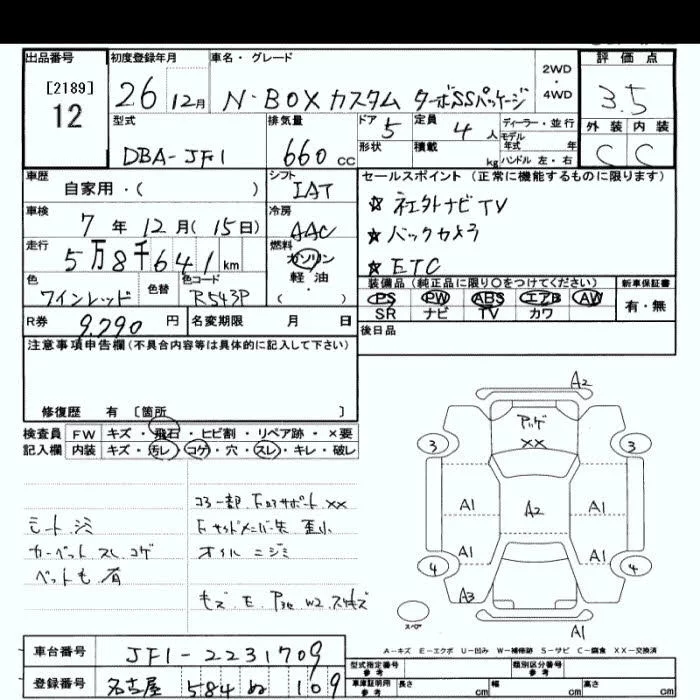 出品番号 初度登録年月 車名・グレード 2WD・4WD 評価点
[2189] 12 26 12月 N-BOXカスタム ターボSSパッケージ 3.5
型式 排気量 ドア 定員 ディーラー・並行 外装 内装
DBA-JF1 660cc 5 4人 モデル年式 年 C C
形状 積載 kg ハンドル 左・右
車歴 シフト セールスポイント(正常に機能するものに限ります)
自家用・( ) IAT
車検 冷房 ☆社外ナビTV
7年12月(15日) AAC ☆バックカメラ
走行 燃料 ☆ETC
5万8千641km ガソリン
軽油
( )
色 色替 色コード 装備品(純正品に限り○をつけてください) 新車保証書
ワインレッド R543P PS PW ABS エアB AW 有・無
SR ナビ TV カワ
R券 9,290円 名変期限 月 日 後日品
注意事項申告欄(不具合内容等は具体的に記入して下さい)
修復歴 有 〔箇所 〕
検査員 FW キズ・飛石・ヒビ割・リペア跡・×要
記入欄 内装 キズ・汚レ・コゲ・穴・スレ・キレ・破レ
シート シミ
カーペット スレ コゲ
ペットも 有
コアー部 下ロアサポート ××
オイルニジミ
A2
××
3 3
A1 A2 A1
A1 A1
4 4
A3
スペア A1
A-キズ E-エクボ U-凹み W-補修跡 S-サビ C-腐食 XX-交換済
車台番号 JF1-2231709
登録番号 名古屋 584 ぬ 109
型式指定番号 参考 類別区分番号 参考
車庫証明用 参考 長さ cm 幅 cm 高さ cm